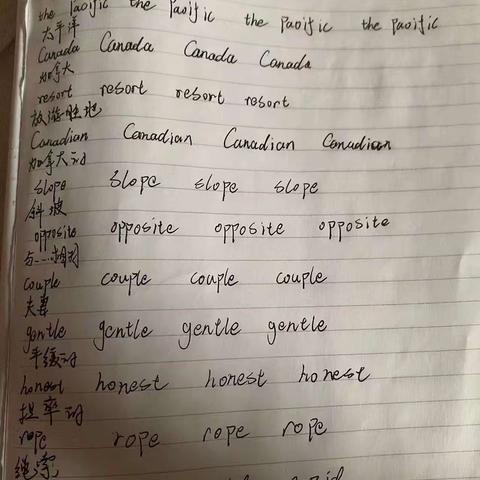 the Pacific the Pacific the Pacific the Pacific
太平洋
Canada Canada Canada Canada
加拿大
resort resort resort resort
旅游胜地
Canadian Canadian Canadian Canadian
加拿大的
slope slope slope slope
斜坡
opposite opposite opposite opposite
与……相对
couple couple couple couple
夫妻
gentle gentle gentle gentle
平缓的
honest honest honest honest
坦率的
rope rope rope rope
绳索